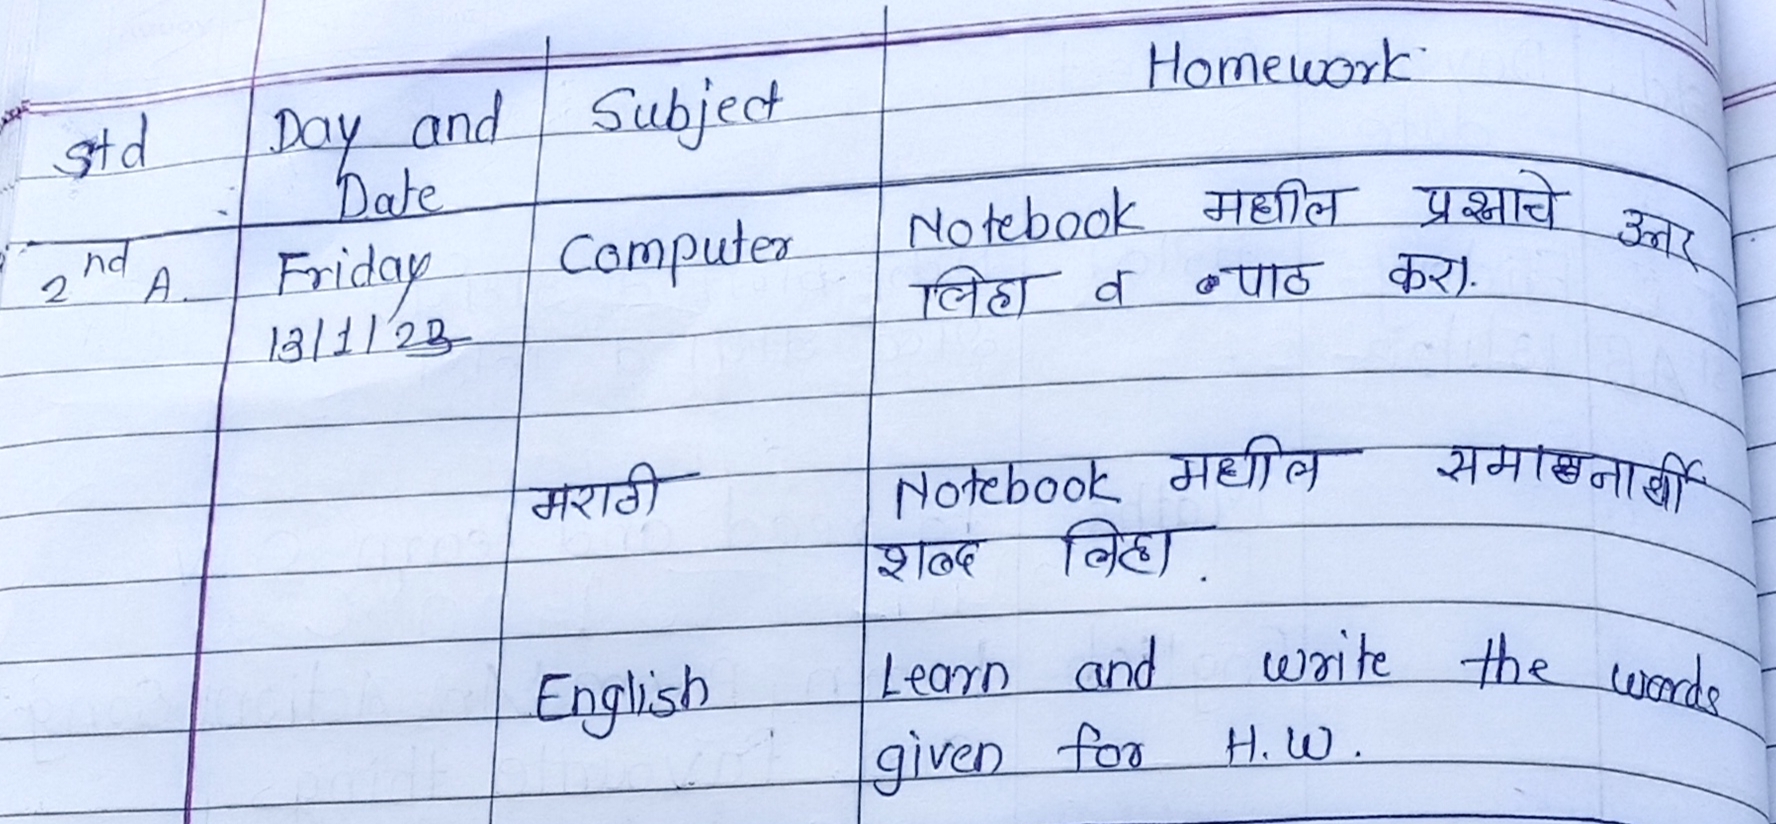 Std Day and Subject Homework
Date
2nd A. Friday Computer Notebook मधील प्रश्नाचे उत्तर
13/1/23 लिहा व पाठ करा.
मराठी Notebook मधील समानार्थी
शब्द लिहा.
English Learn and write the words
given for H.W.